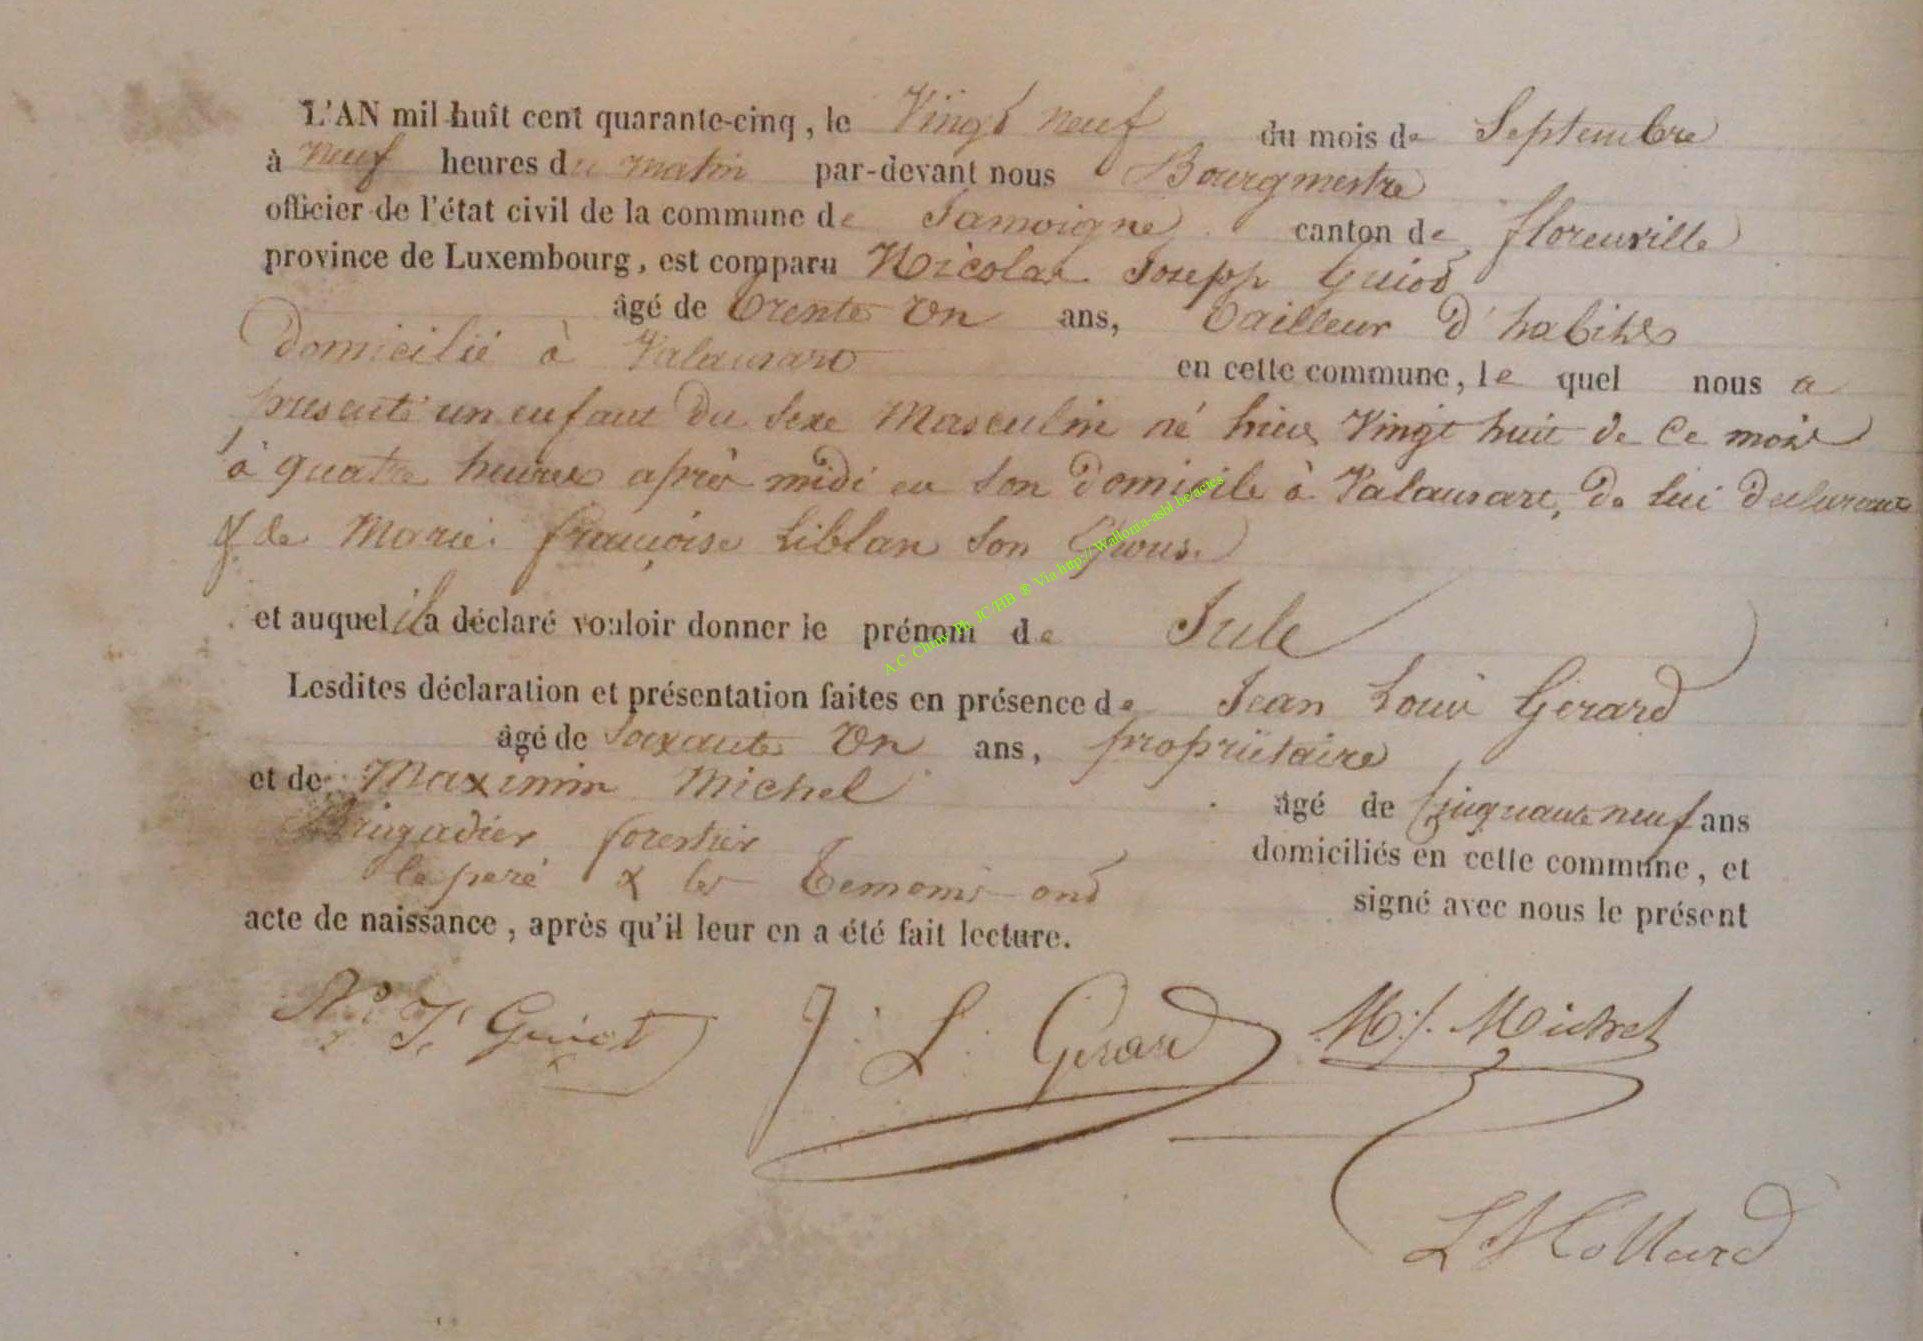 L'AN mil huit cent quarante-cinq, le Vingt neuf du mois de Septembre
à neuf heures du matin par-devant nous Bourgmestre
officier de l'état civil de la commune de Jamoigne canton de florenville
province de Luxembourg, est comparu Nicolas Joseph Guiot
âgé de trente un ans, tailleur d'habits
domicilié à Valansart en cette commune, le quel nous a
presenté un enfant du Sexe Masculin né hier Vingt huit de ce mois
à quatre heures après midi en son domicile à Valansart, de lui declarant
& de Marie françoise Liblan son Epouse
et auquel il a déclaré vouloir donner le prénom de Jule
Lesdites déclaration et présentation faites en présence de Jean Louis Gerard
âgé de Soixante un ans, propriétaire
et de Maximin Michel âgé de Cinquante neuf ans
Brigadier forestier domiciliés en cette commune, et
le pere & les temoins ont signé avec nous le présent
acte de naissance, après qu'il leur en a été fait lecture.
N J Guiot J. L. Gerard M. Michel
Hollard
A.C. Chiny Ph. JC/HB ® Via http://Wallonia-asbl.be/actes